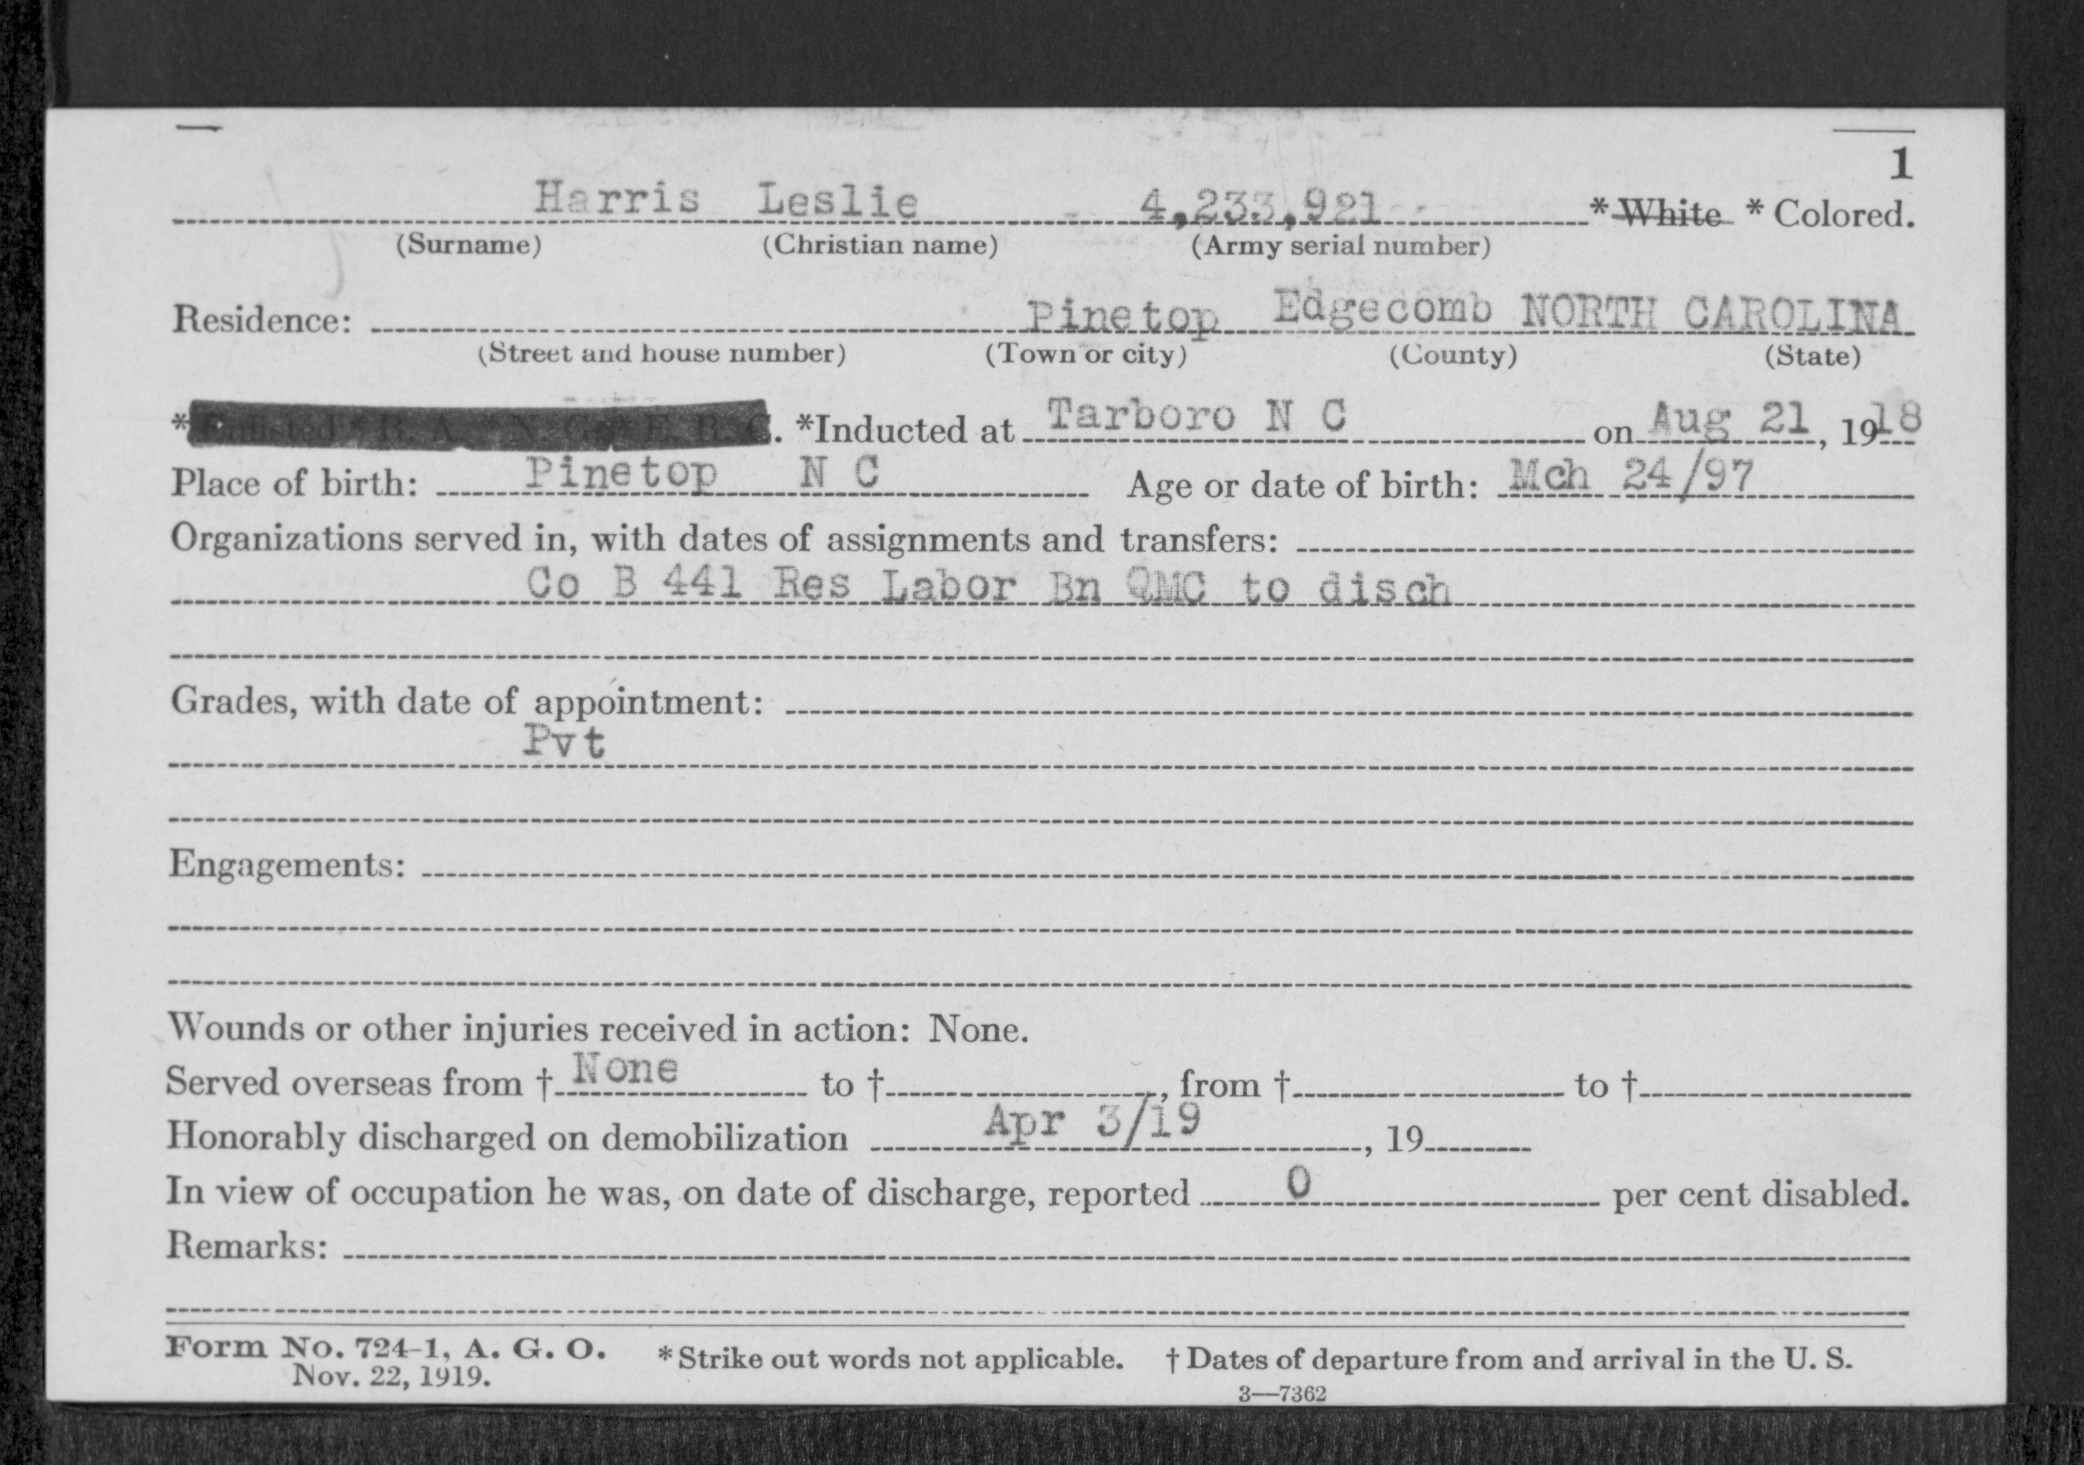 1
Harris Leslie 4,233,921 *White * Colored.
(Surname) (Christian name) (Army serial number)
Residence: Pinetop Edgecomb NORTH CAROLINA
(Street and house number) (Town or city) (County) (State)
*Enlisted * R. A. * N. G. * E. R. C. *Inducted at Tarboro N C on Aug 21, 1918
Place of birth: Pinetop N C Age or date of birth: Mch 24/97
Organizations served in, with dates of assignments and transfers:
Co B 441 Res Labor Bn QMC to disch
Grades, with date of appointment:
Pvt
Engagements:
Wounds or other injuries received in action: None.
Served overseas from † None to †, from † to †
Honorably discharged on demobilization Apr 3/19, 19
In view of occupation he was, on date of discharge, reported 0 per cent disabled.
Remarks:
Form No. 724-1, A. G. O. *Strike out words not applicable. † Dates of departure from and arrival in the U. S.
Nov. 22, 1919.
3—7362